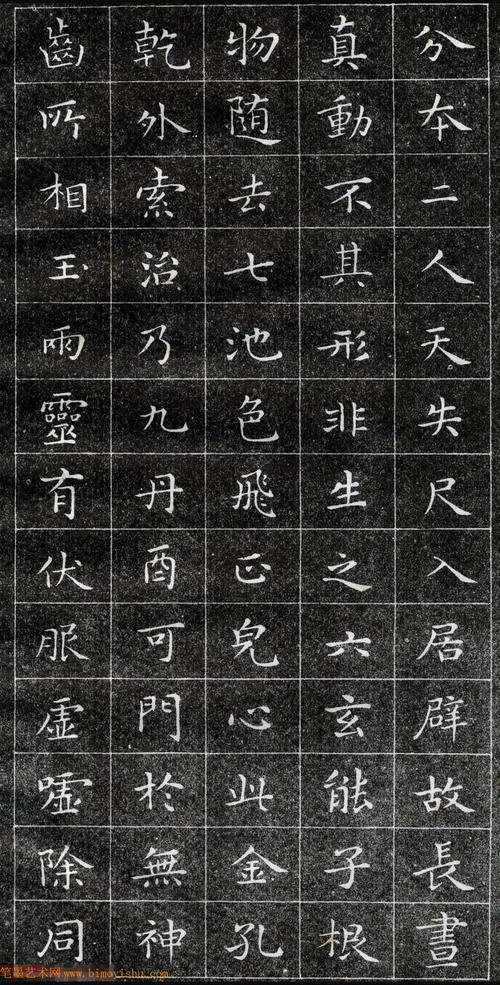 分本二人天失尺入居辟故長晝
真動不其形非生之六玄能子根
物随去七池色飛正皃心此金孔
乾外索治乃九丹酉可門於無神
齒所相玉雨靈有伏服虚嘘除同
笔墨艺术网 www.bimoyishu.com